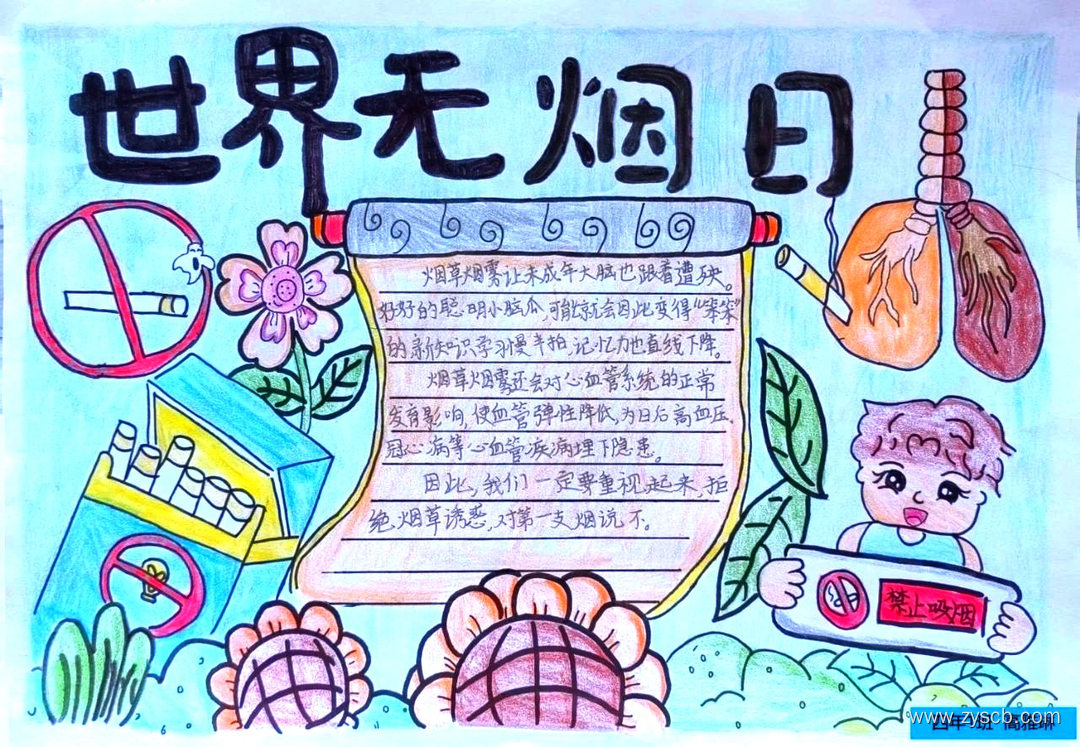 世界无烟日
烟草烟雾让未成年大脑也跟着遭殃。
好好的聪明小脑瓜,可能就会因此变得“笨笨”
的,新知识学习慢半拍,记忆力也直线下降。
烟草烟雾还会对心血管系统的正常
发育影响,使血管弹性降低,为日后高血压、
冠心病等心血管疾病埋下隐患。
因此,我们一定要重视起来,拒
绝烟草诱惑,对第一支烟说不。
禁止吸烟
www.zyscb.com